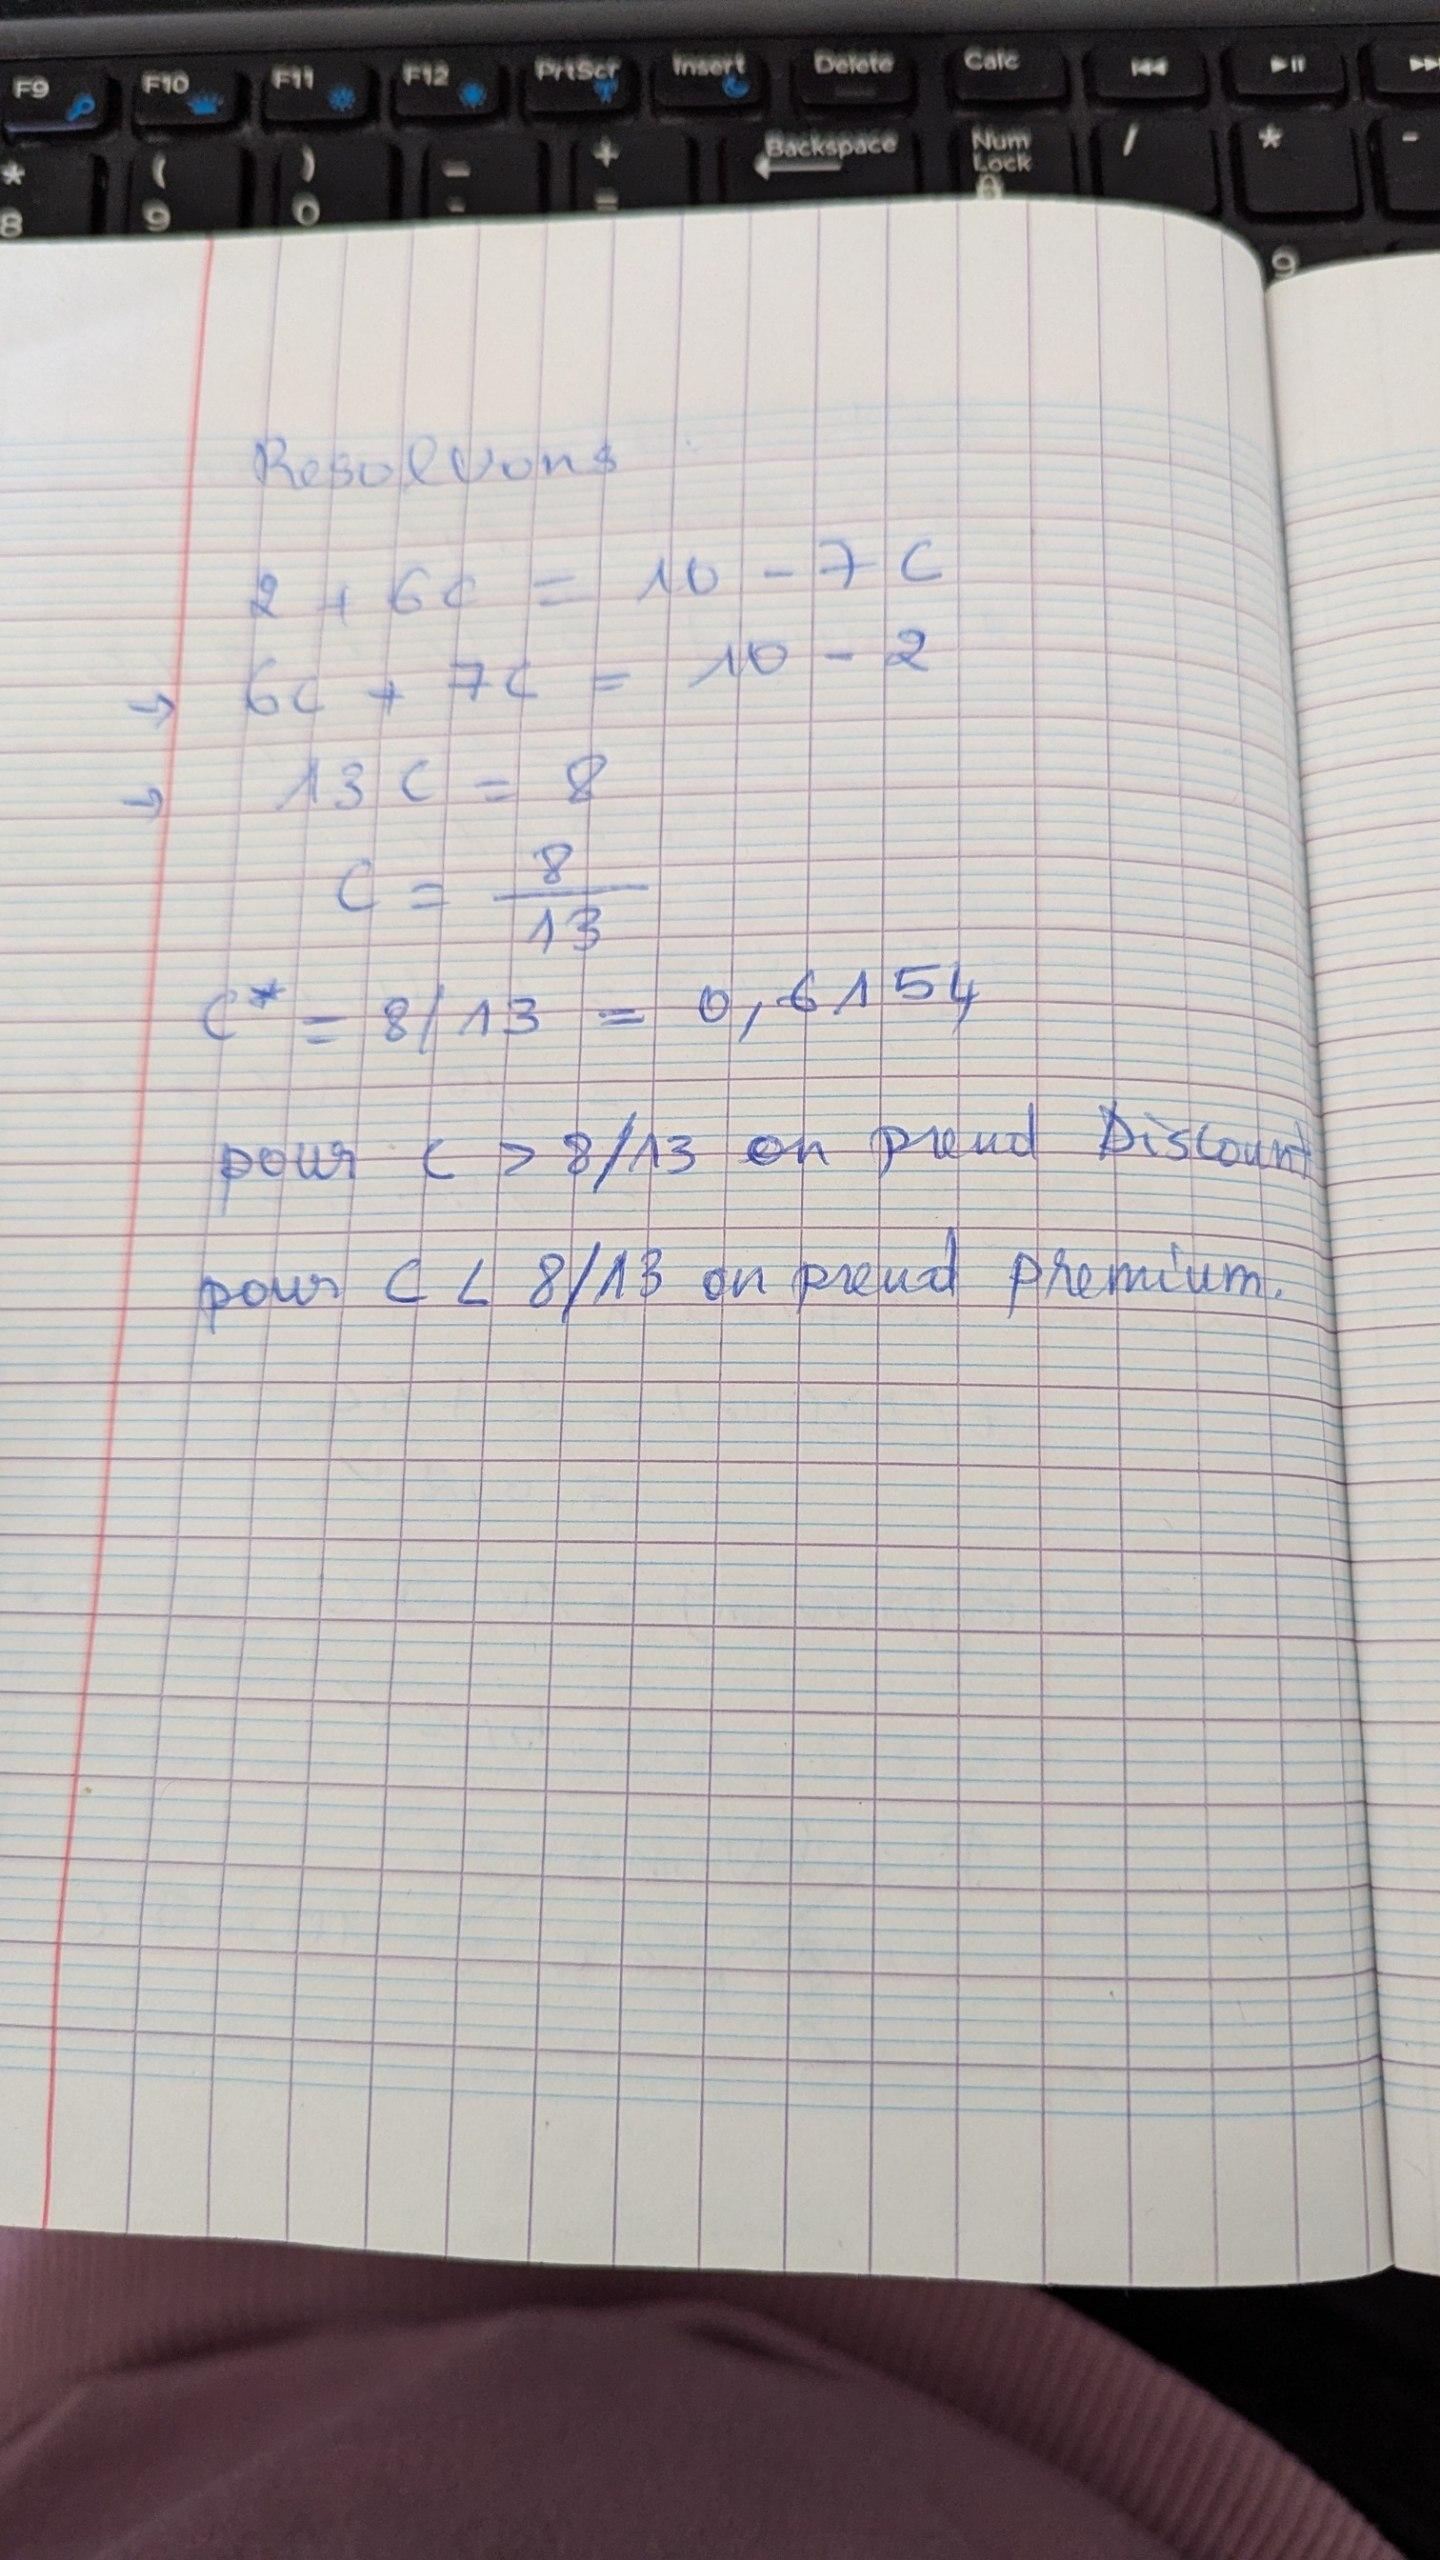 F9 F10 F11 F12 PrtScr Insert Delete Calc
* ( ) - + Backspace Num Lock / * -
8 9 0 - =
9
Resolvons
2 + 6c = 10 - 7C
→ 6c + 7c = 10 - 2
→ 13C = 8
C = 8/13
C* = 8/13 = 0,6154
pour c > 8/13 on prend Discount
pour C < 8/13 on prend premium.